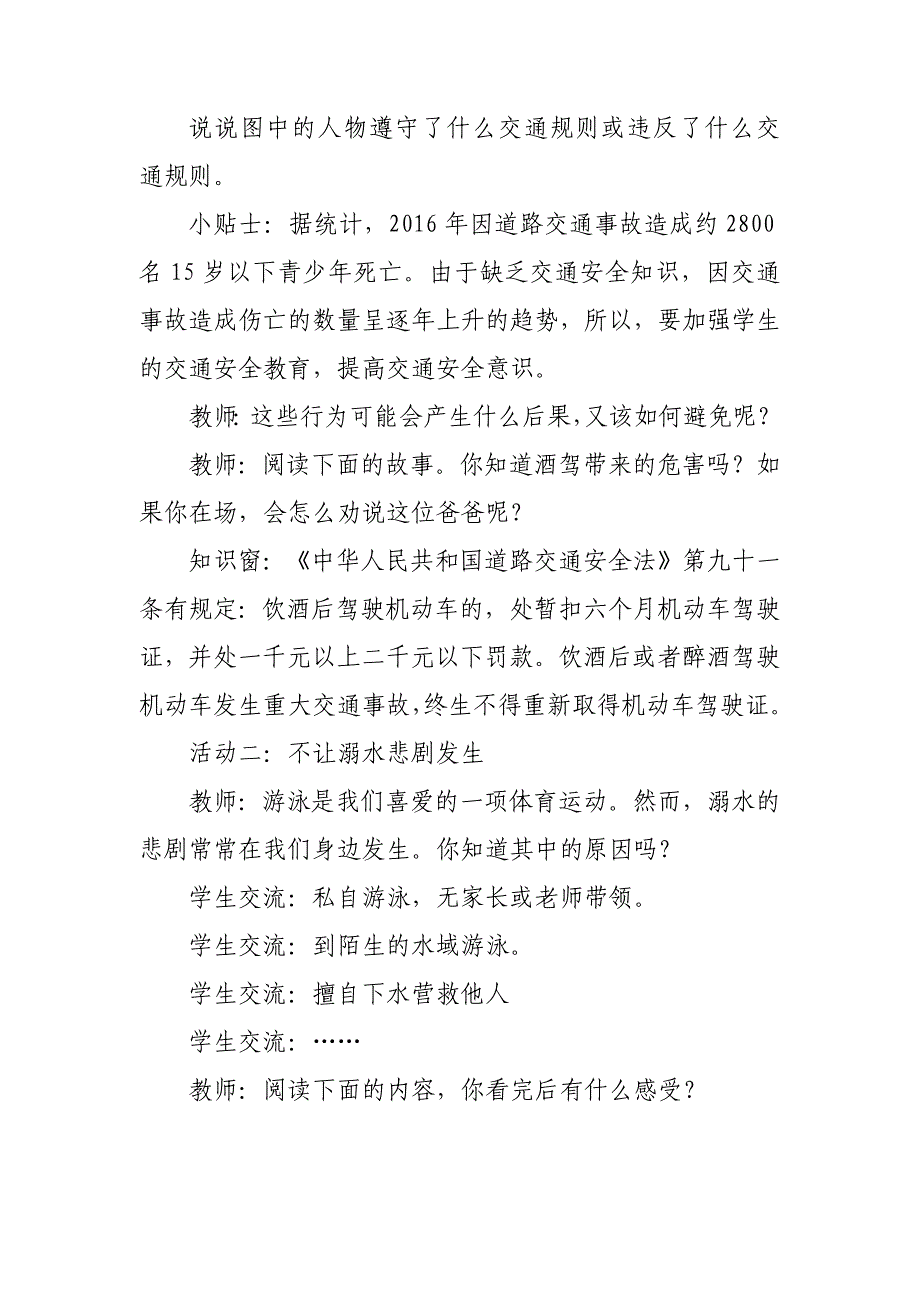 说说图中的人物遵守了什么交通规则或违反了什么交
通规则。
小贴士：据统计，2016 年因道路交通事故造成约 2800
名 15 岁以下青少年死亡。由于缺乏交通安全知识，因交通
事故造成伤亡的数量呈逐年上升的趋势，所以，要加强学生
的交通安全教育，提高交通安全意识。
教师：这些行为可能会产生什么后果，又该如何避免呢？
教师：阅读下面的故事。你知道酒驾带来的危害吗？如
果你在场，会怎么劝说这位爸爸呢？
知识窗：《中华人民共和国道路交通安全法》第九十一
条有规定：饮酒后驾驶机动车的，处暂扣六个月机动车驾驶
证，并处一千元以上二千元以下罚款。饮酒后或者醉酒驾驶
机动车发生重大交通事故，终生不得重新取得机动车驾驶证。
活动二：不让溺水悲剧发生
教师：游泳是我们喜爱的一项体育运动。然而，溺水的
悲剧常常在我们身边发生。你知道其中的原因吗？
学生交流：私自游泳，无家长或老师带领。
学生交流：到陌生的水域游泳。
学生交流：擅自下水营救他人
学生交流：……
教师：阅读下面的内容，你看完后有什么感受？